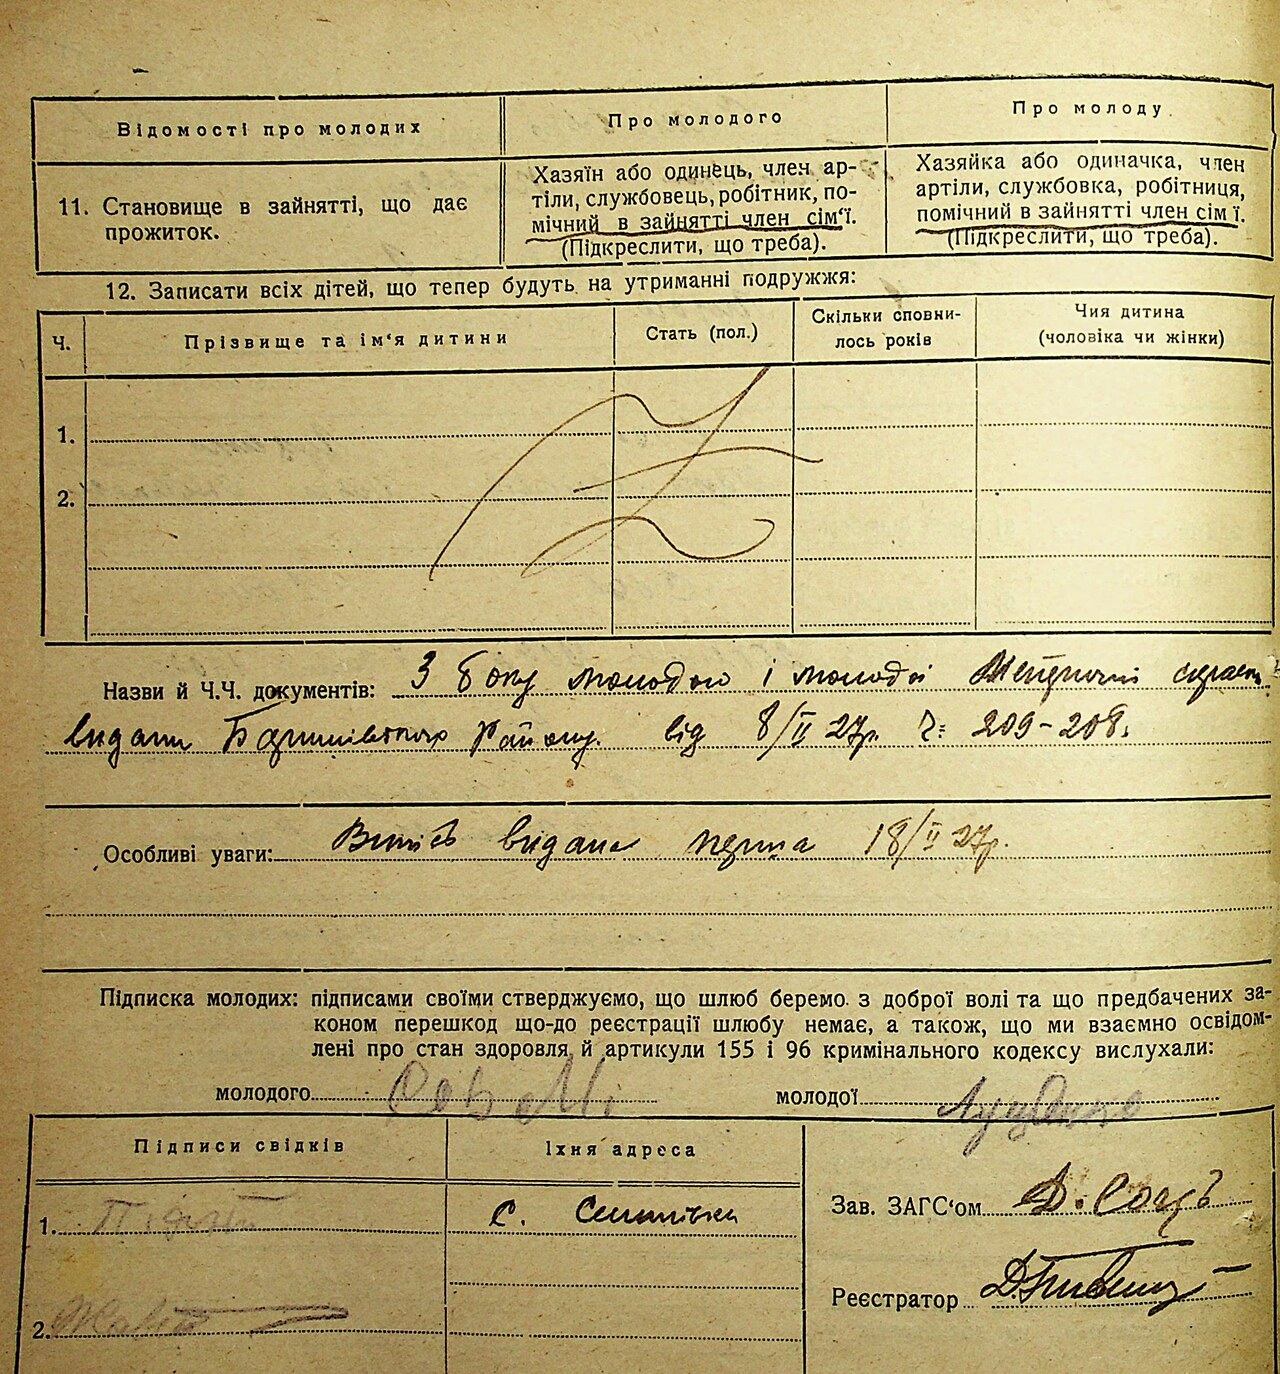 Відомості про молодих
Про молодого
Про молоду
11. Становище в зайнятті, що дає
прожиток.
Хазяїн або одинець, член ар-
тіли, службовець, робітник, по-
мічний в зайнятті член сім'ї.
(Підкреслити, що треба).
Хазяйка або одиначка, член
артіли, службовка, робітниця,
помічний в зайнятті член сім ї.
(Підкреслити, що треба).
12. Записати всіх дітей, що тепер будуть на утриманні подружжя:
Ч.
Прізвище та ім'я дитини
Стать (пол.)
Скільки сповни-
лось років
Чия дитина
(чоловіка чи жінки)
1.
2.
Назви й Ч.Ч. документів: З боку молодого і молодої
видани Району від 8/II 27р. 209-208.
Особливі уваги: видана перша 18/II 27р.
Підписка молодих: підписами своїми стверджуємо, що шлюб беремо з доброї волі та що предбачених за-
коном перешкод що-до реєстрації шлюбу немає, а також, що ми взаємно освідом-
лені про стан здоровля й артикули 155 і 96 кримінального кодексу вислухали:
молодого
молодої
Підписи свідків
Їхня адреса
1.
с.
2.
Зав. ЗАГС'ом Д.
Реєстратор